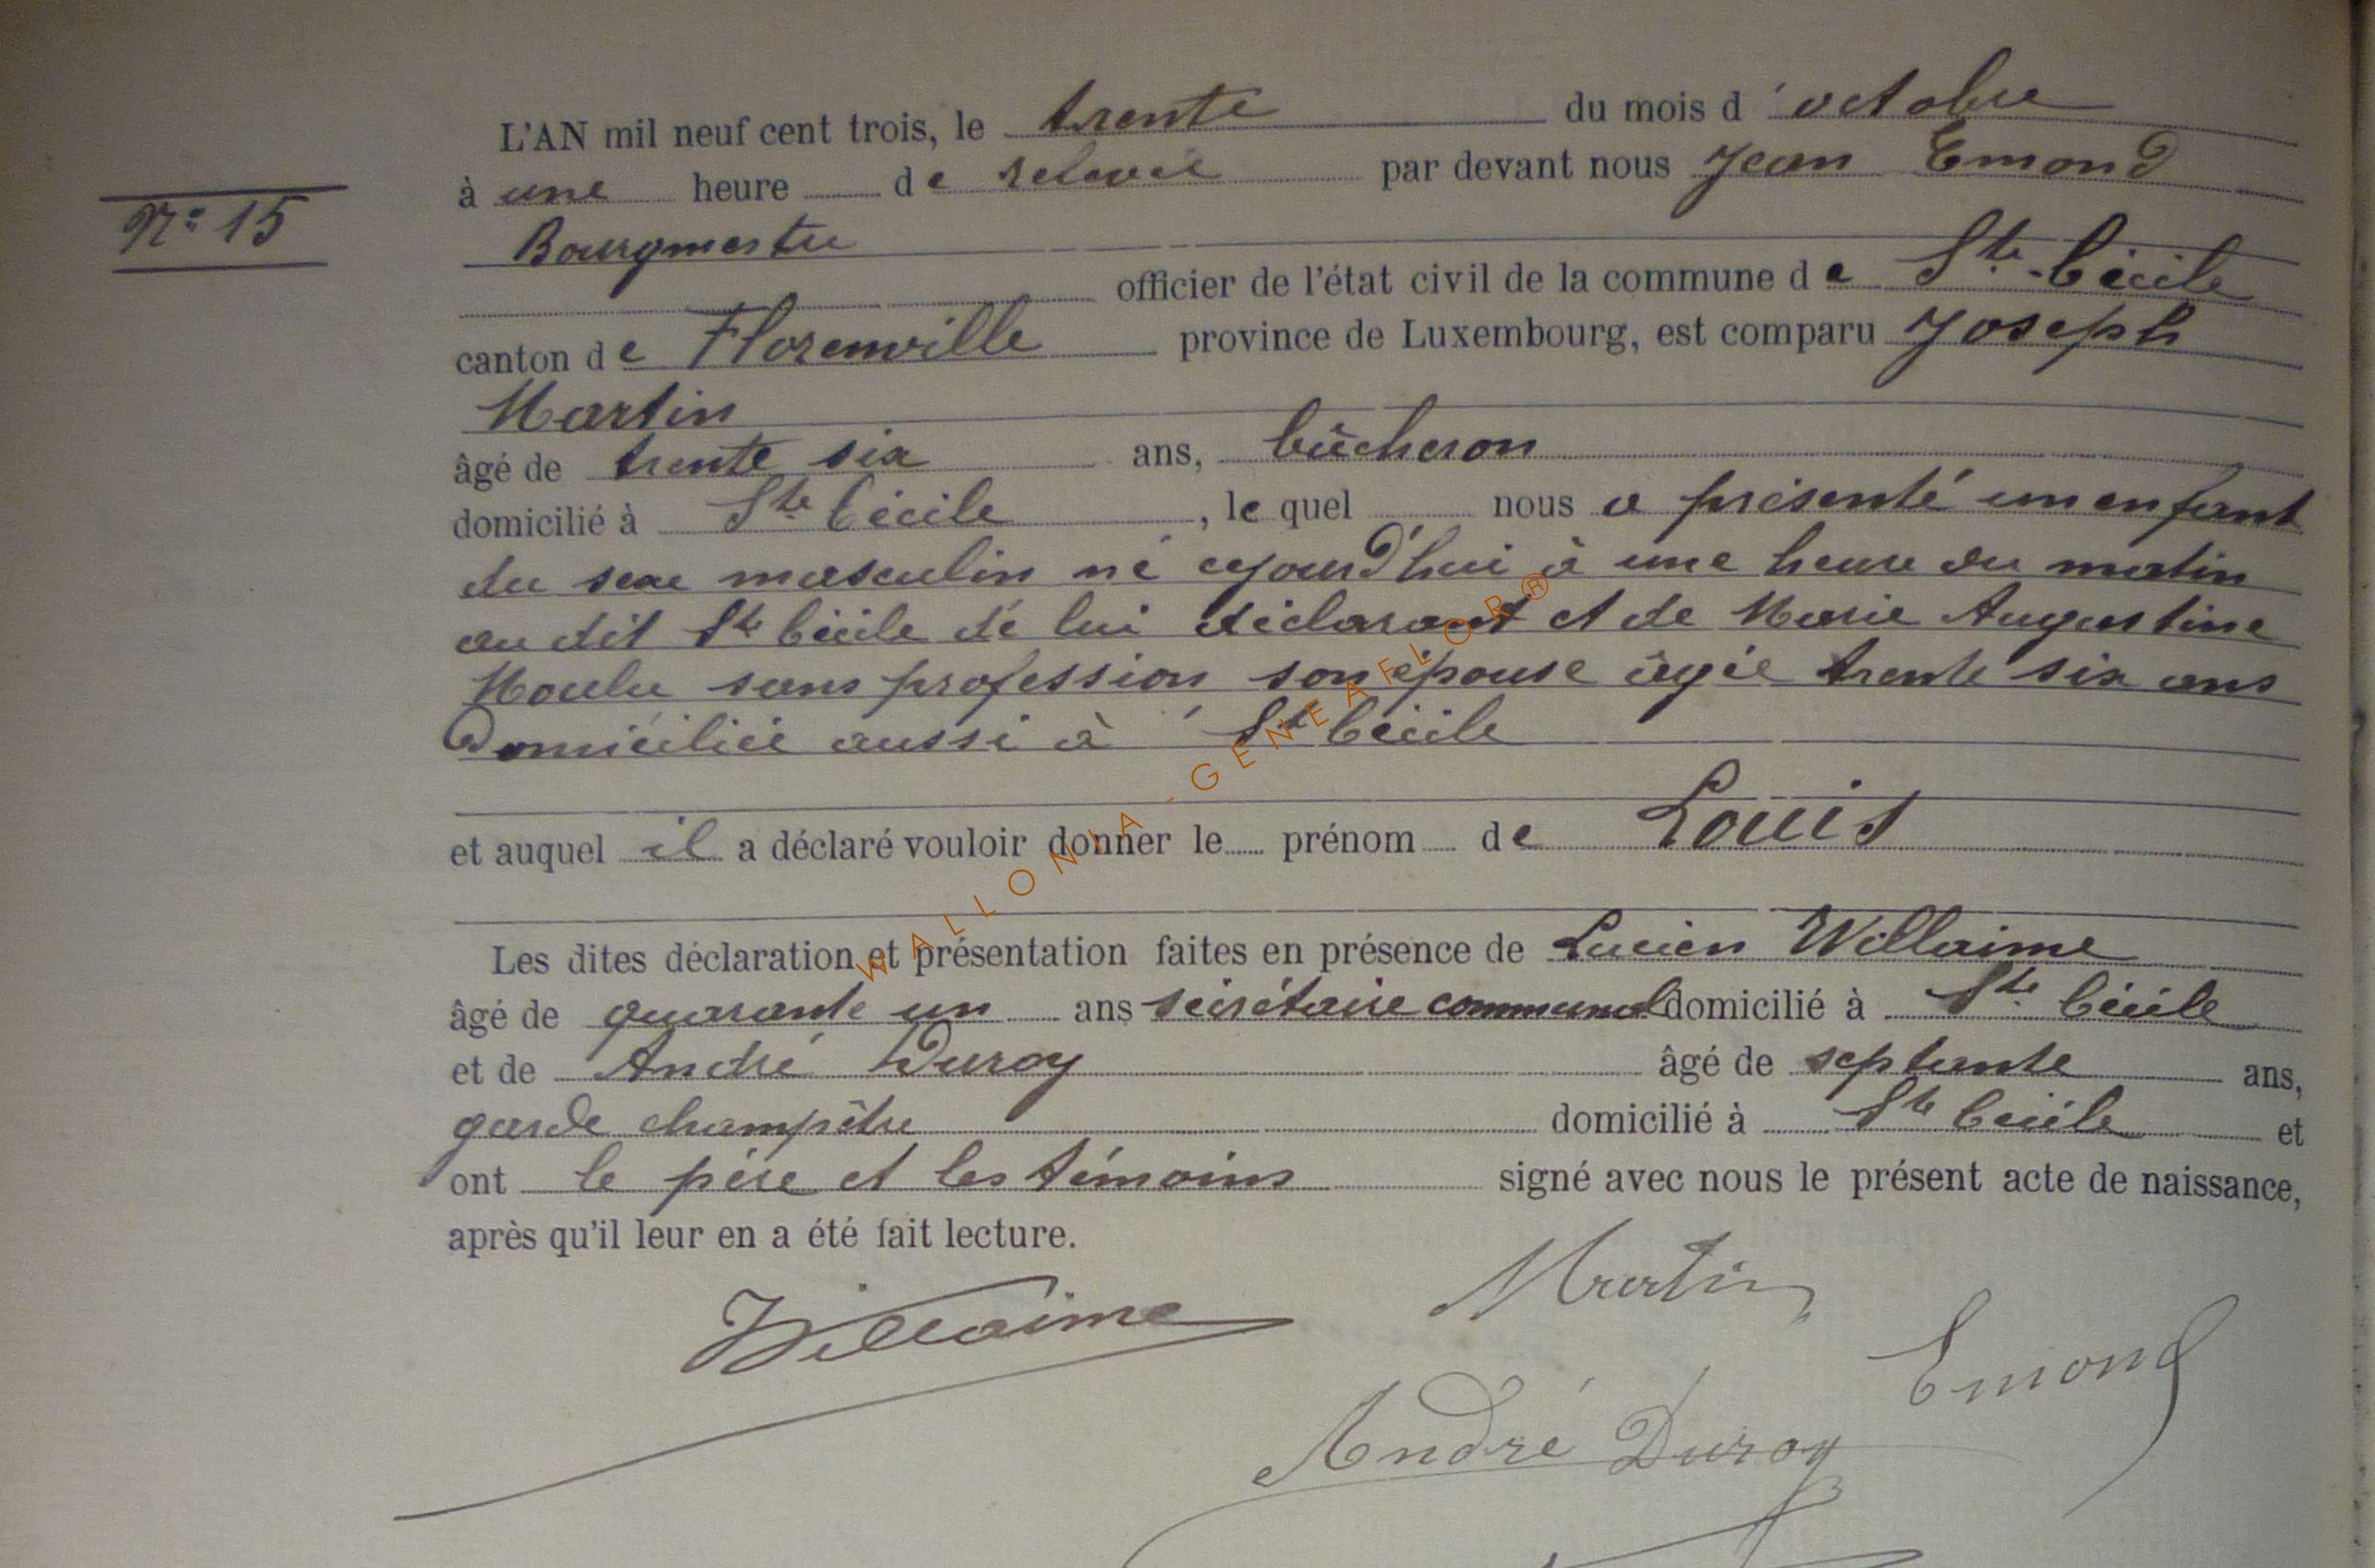 L'AN mil neuf cent trois, le trente du mois d'octobre
à une heure de relevée par devant nous Jean Emond
N° 15
Bourgmestre
officier de l'état civil de la commune de Ste Cécile
canton de Florenville province de Luxembourg, est comparu Joseph
Martin
âgé de trente six ans, bûcheron
domicilié à Ste Cécile, le quel nous a présenté un enfant
du sexe masculin né cejourd'hui à une heure du matin
au dit Ste Cécile de lui déclarant et de Marie Augustine
Moulu sans profession, son épouse âgée trente six ans
domiciliée aussi à Ste Cécile
et auquel il a déclaré vouloir donner le prénom de Louis
Les dites déclaration et présentation faites en présence de Lucien Willaime
âgé de quarante un ans secrétaire communal domicilié à Ste Cécile
et de André Duroy âgé de septante ans,
garde champêtre domicilié à Ste Cécile et
ont le père et les témoins signé avec nous le présent acte de naissance,
après qu'il leur en a été fait lecture.
Martin
Willaime
Emond
André Duroy
WALLONIA-GENEAFLOR®